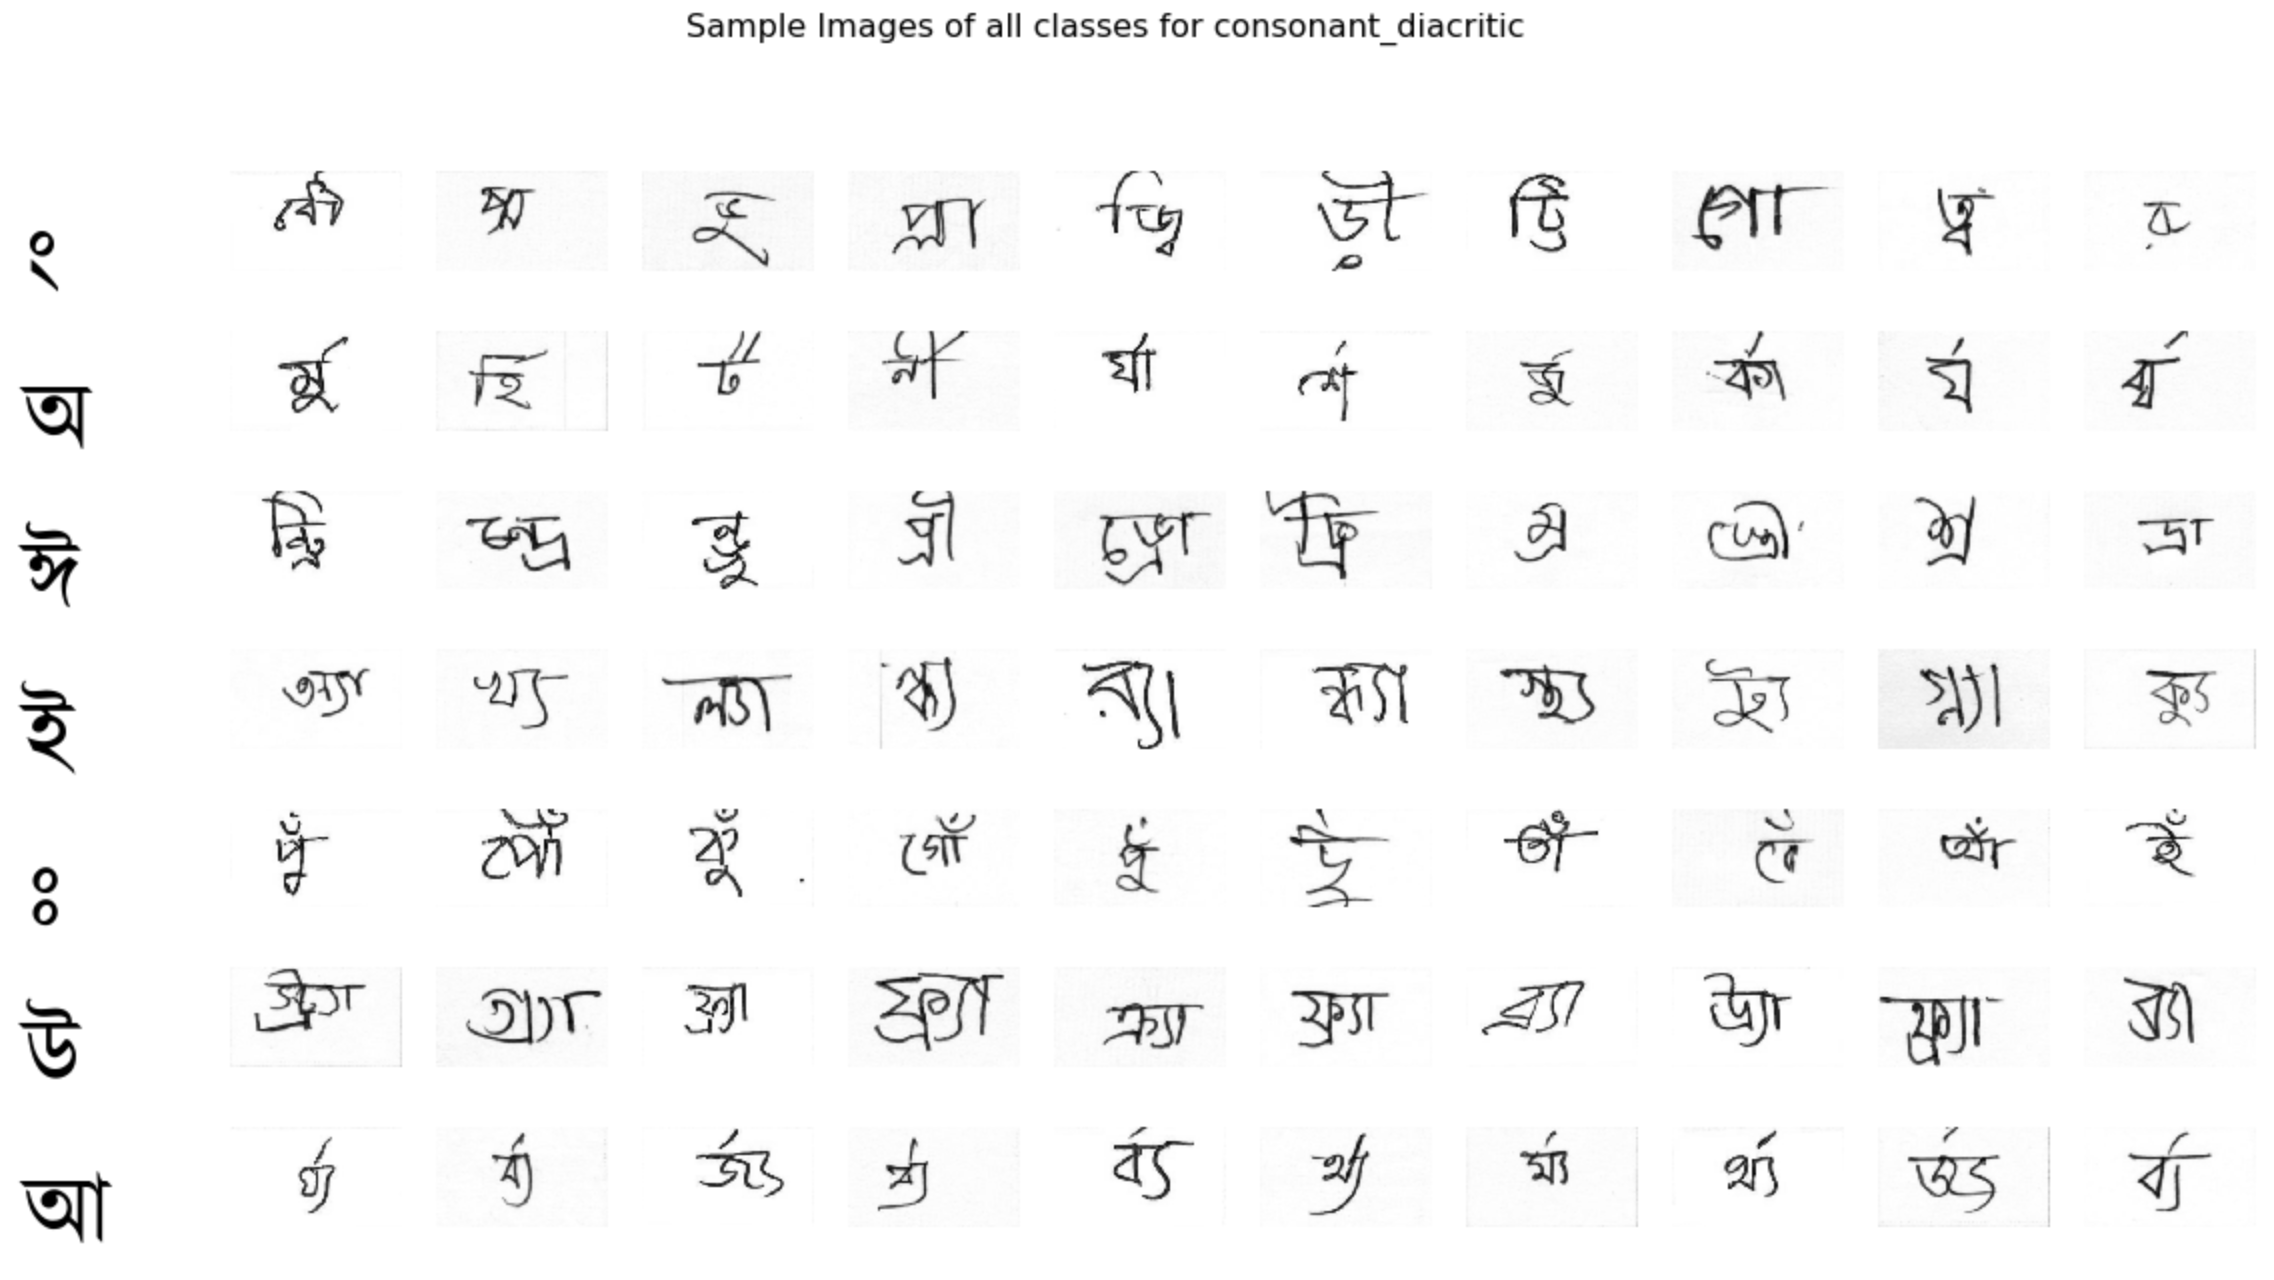 Sample Images of all classes for consonant_diacritic
ং ভূ ল্লা জ্বি ড়ী ট্টি গো ত্ব র
অ র্মু র্হি র্ট র্ণী র্ঘা র্শে র্জু র্কা র্ঘ র্ব্ব
ঈ ন্ট্রি ন্দ্রে ন্ত্রু প্রী ভ্রো ফ্রি ম্র শ্র ড্রা
ই ত্যা খ্য ল্যা ন্ধ্য র‍্যা ন্ধ্যা স্থ্য ট্যু গ্ন্যা ক্যু
ঃ পুঁ পোঁ কুঁ গোঁ ধুঁ উঁ তাঁ বেঁ আঁ ইঁ
উ স্ট্র্যা ত্র্যা ফ্র্যা ফ্র্যা ক্র্যা ফ্র্যা ব্র্যা ড্র্যা ফ্র্যা ব্র্যা
আ র্ঘ্য র্ব্য র্জ্য র্ষ্য র্ব্য র্থ্য র্ম্য র্থ্য র্জ্য র্ব্য